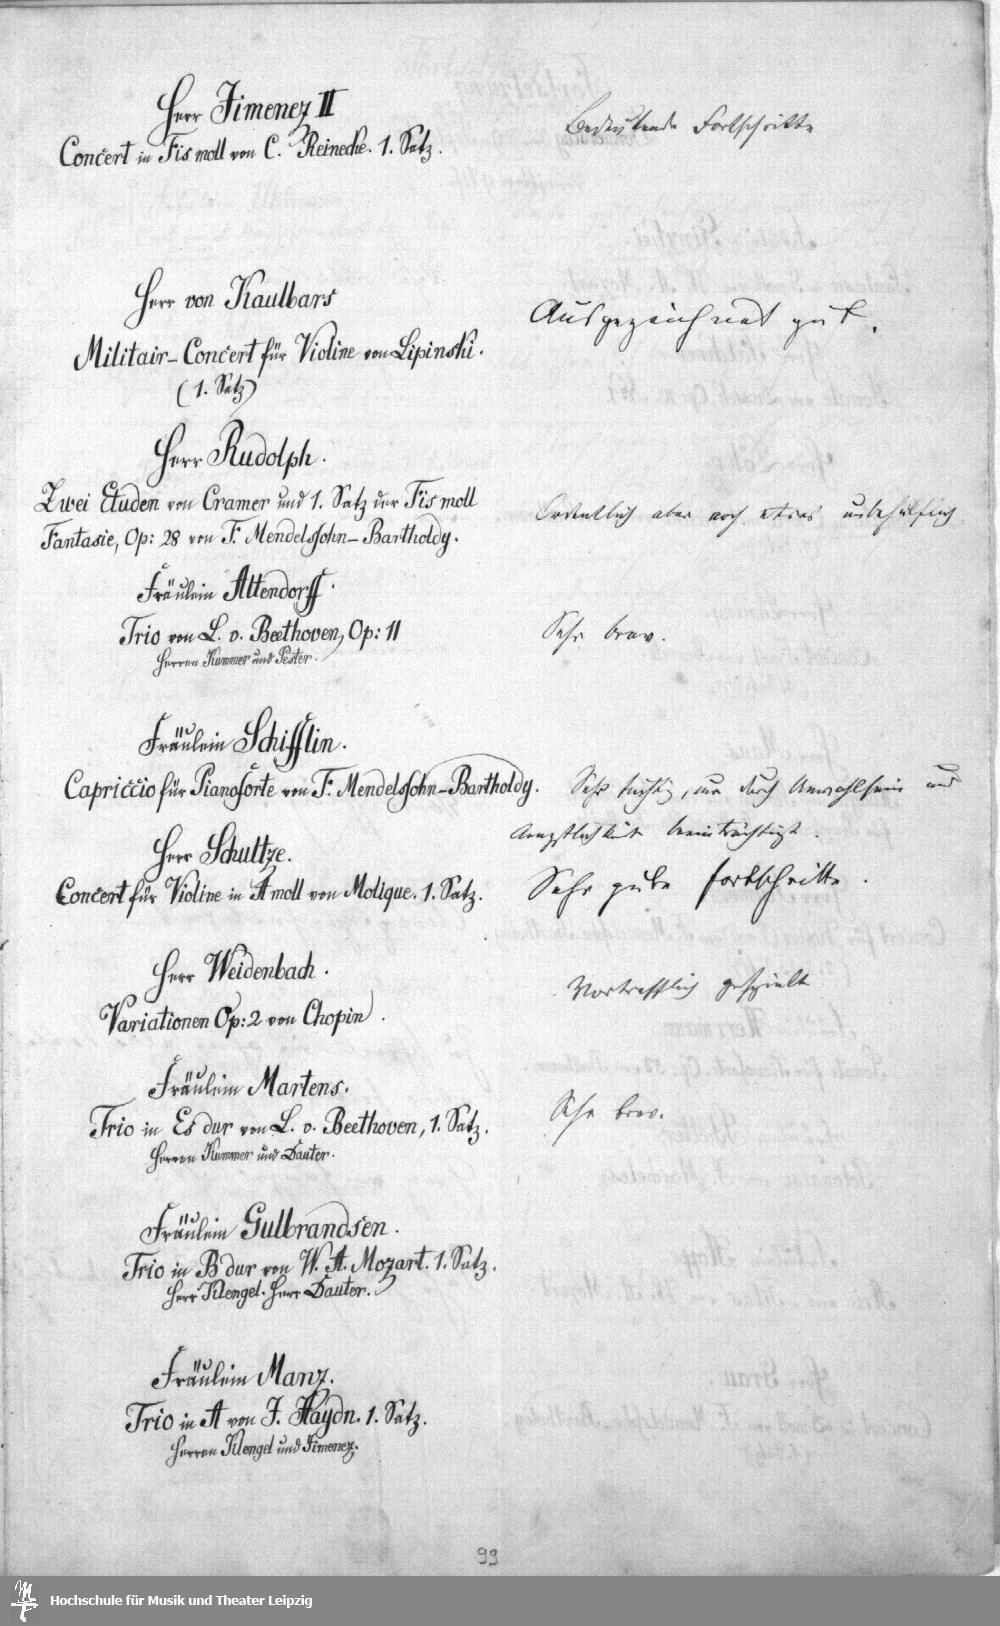 Herr Jimenez II
Concert in Fis moll von C. Reinecke. 1. Satz.
Bedeutende Fortschritte
Herr von Kaulbars
Militair-Concert für Violine von Lipinski.
(1. Satz)
Ausgezeichnet gut.
Herr Rudolph.
Zwei Etuden von Cramer und 1. Satz der Fis moll
Fantasie, Op: 28 von F. Mendelssohn-Bartholdy.
Ordentlich aber noch etwas unbehülflich
Fräulein Altendorff.
Trio von L. v. Beethoven, Op: 11
Herren Kummer und Pester.
Sehr brav.
Fräulein Schifflin.
Capriccio für Pianoforte von F. Mendelssohn-Bartholdy.
Sehr tüchtig, nur durch Unwohlsein und
Aengstlichkeit beeinträchtigt.
Herr Schultze.
Concert für Violine in A moll von Molique. 1. Satz.
Sehr gute Fortschritte.
Herr Weidenbach.
Variationen Op: 2 von Chopin.
Vortrefflich gespielt
Fräulein Martens.
Trio in Es dur von L. v. Beethoven, 1. Satz.
Herren Kummer und Dauter.
Sehr brav.
Fräulein Gulbrandsen.
Trio in B dur von W. A. Mozart. 1. Satz.
Herr Klengel. Herr Dauter.
Fräulein Manz.
Trio in A von J. Haydn. 1. Satz.
Herren Klengel und Jimenez.
99
Hochschule für Musik und Theater Leipzig